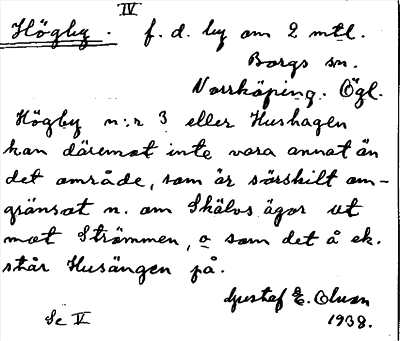 IV
Högby. f. d. by om 2 mtl.
Borgs sn.
Norrköping. Ögl.
Högby n:r 3 eller Hushagen
kan däremot inte vara annat än
det område, som är särskilt om-
gränsat n. om Skälvs ägor ut
mot Strömmen, o som det å ek.
står Husängen på.
Gustaf E. Olsson
1938.
Se V